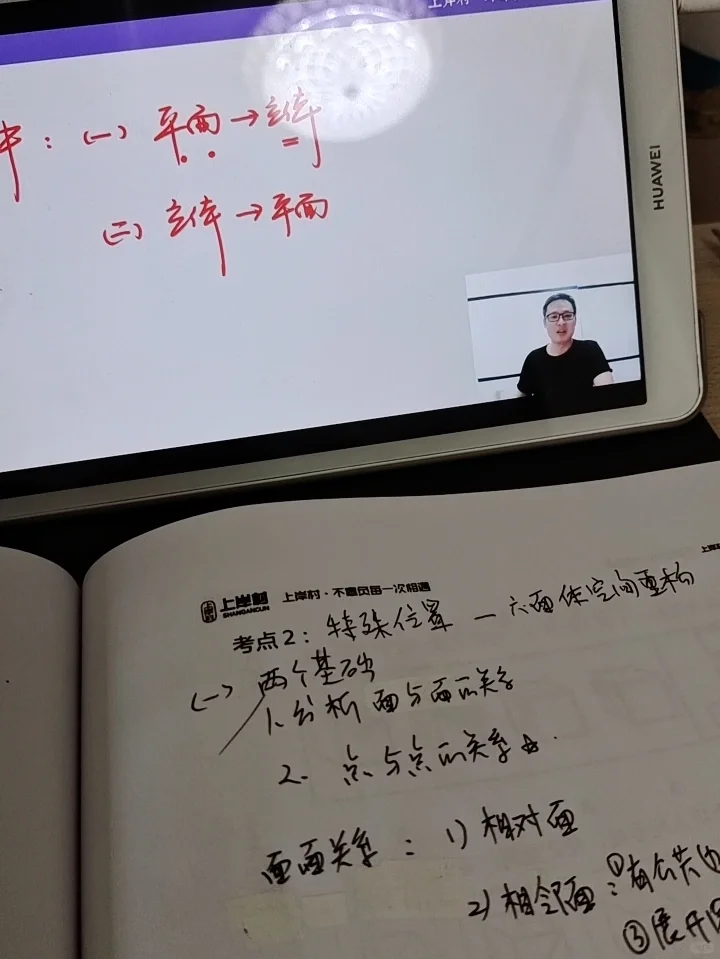 上岸村
：（一）平面→立体
（二）立体→平面
HUAWEI
上岸村 上岸村·不辜负每一次相遇
SHANGANCUN
考点2：特殊位置—六面体空间重构
（一）两个基础
1、分析面与面的关系
2、点与点的关系☆.
面面关系：1）相对面
2）相邻面：①有公共
③展开